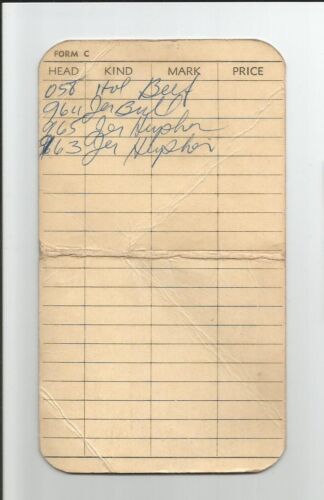 FORM C
HEAD KIND MARK PRICE
058 Hol Beef
964 Jer Bull
965 Jer
963 Jer